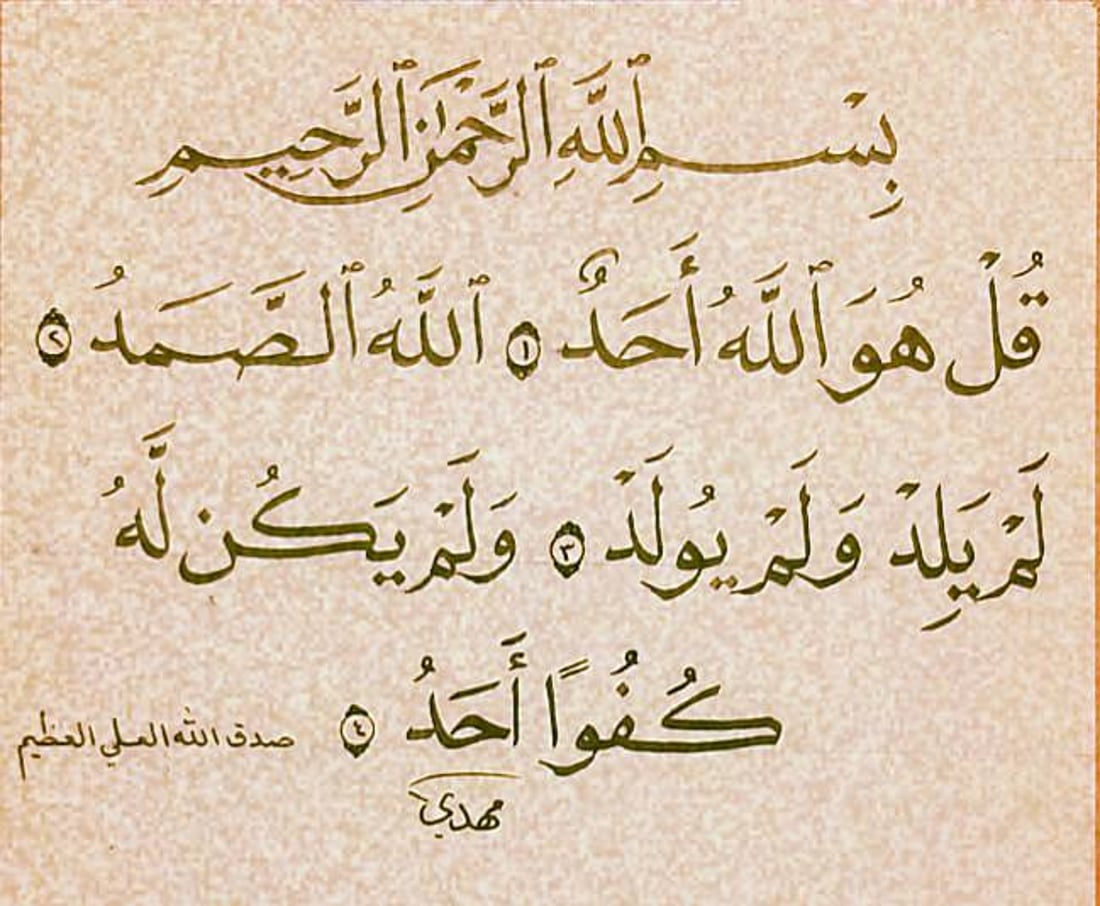 بِسْمِ ٱللَّهِ ٱلرَّحْمَٰنِ ٱلرَّحِيمِ
قُلْ هُوَ ٱللَّهُ أَحَدٌ ١ ٱللَّهُ ٱلصَّمَدُ ٢
لَمْ يَلِدْ وَلَمْ يُولَدْ ٣ وَلَمْ يَكُن لَّهُ
كُفُوًا أَحَدُ ٤
صدق الله العلي العظيم
مهدي